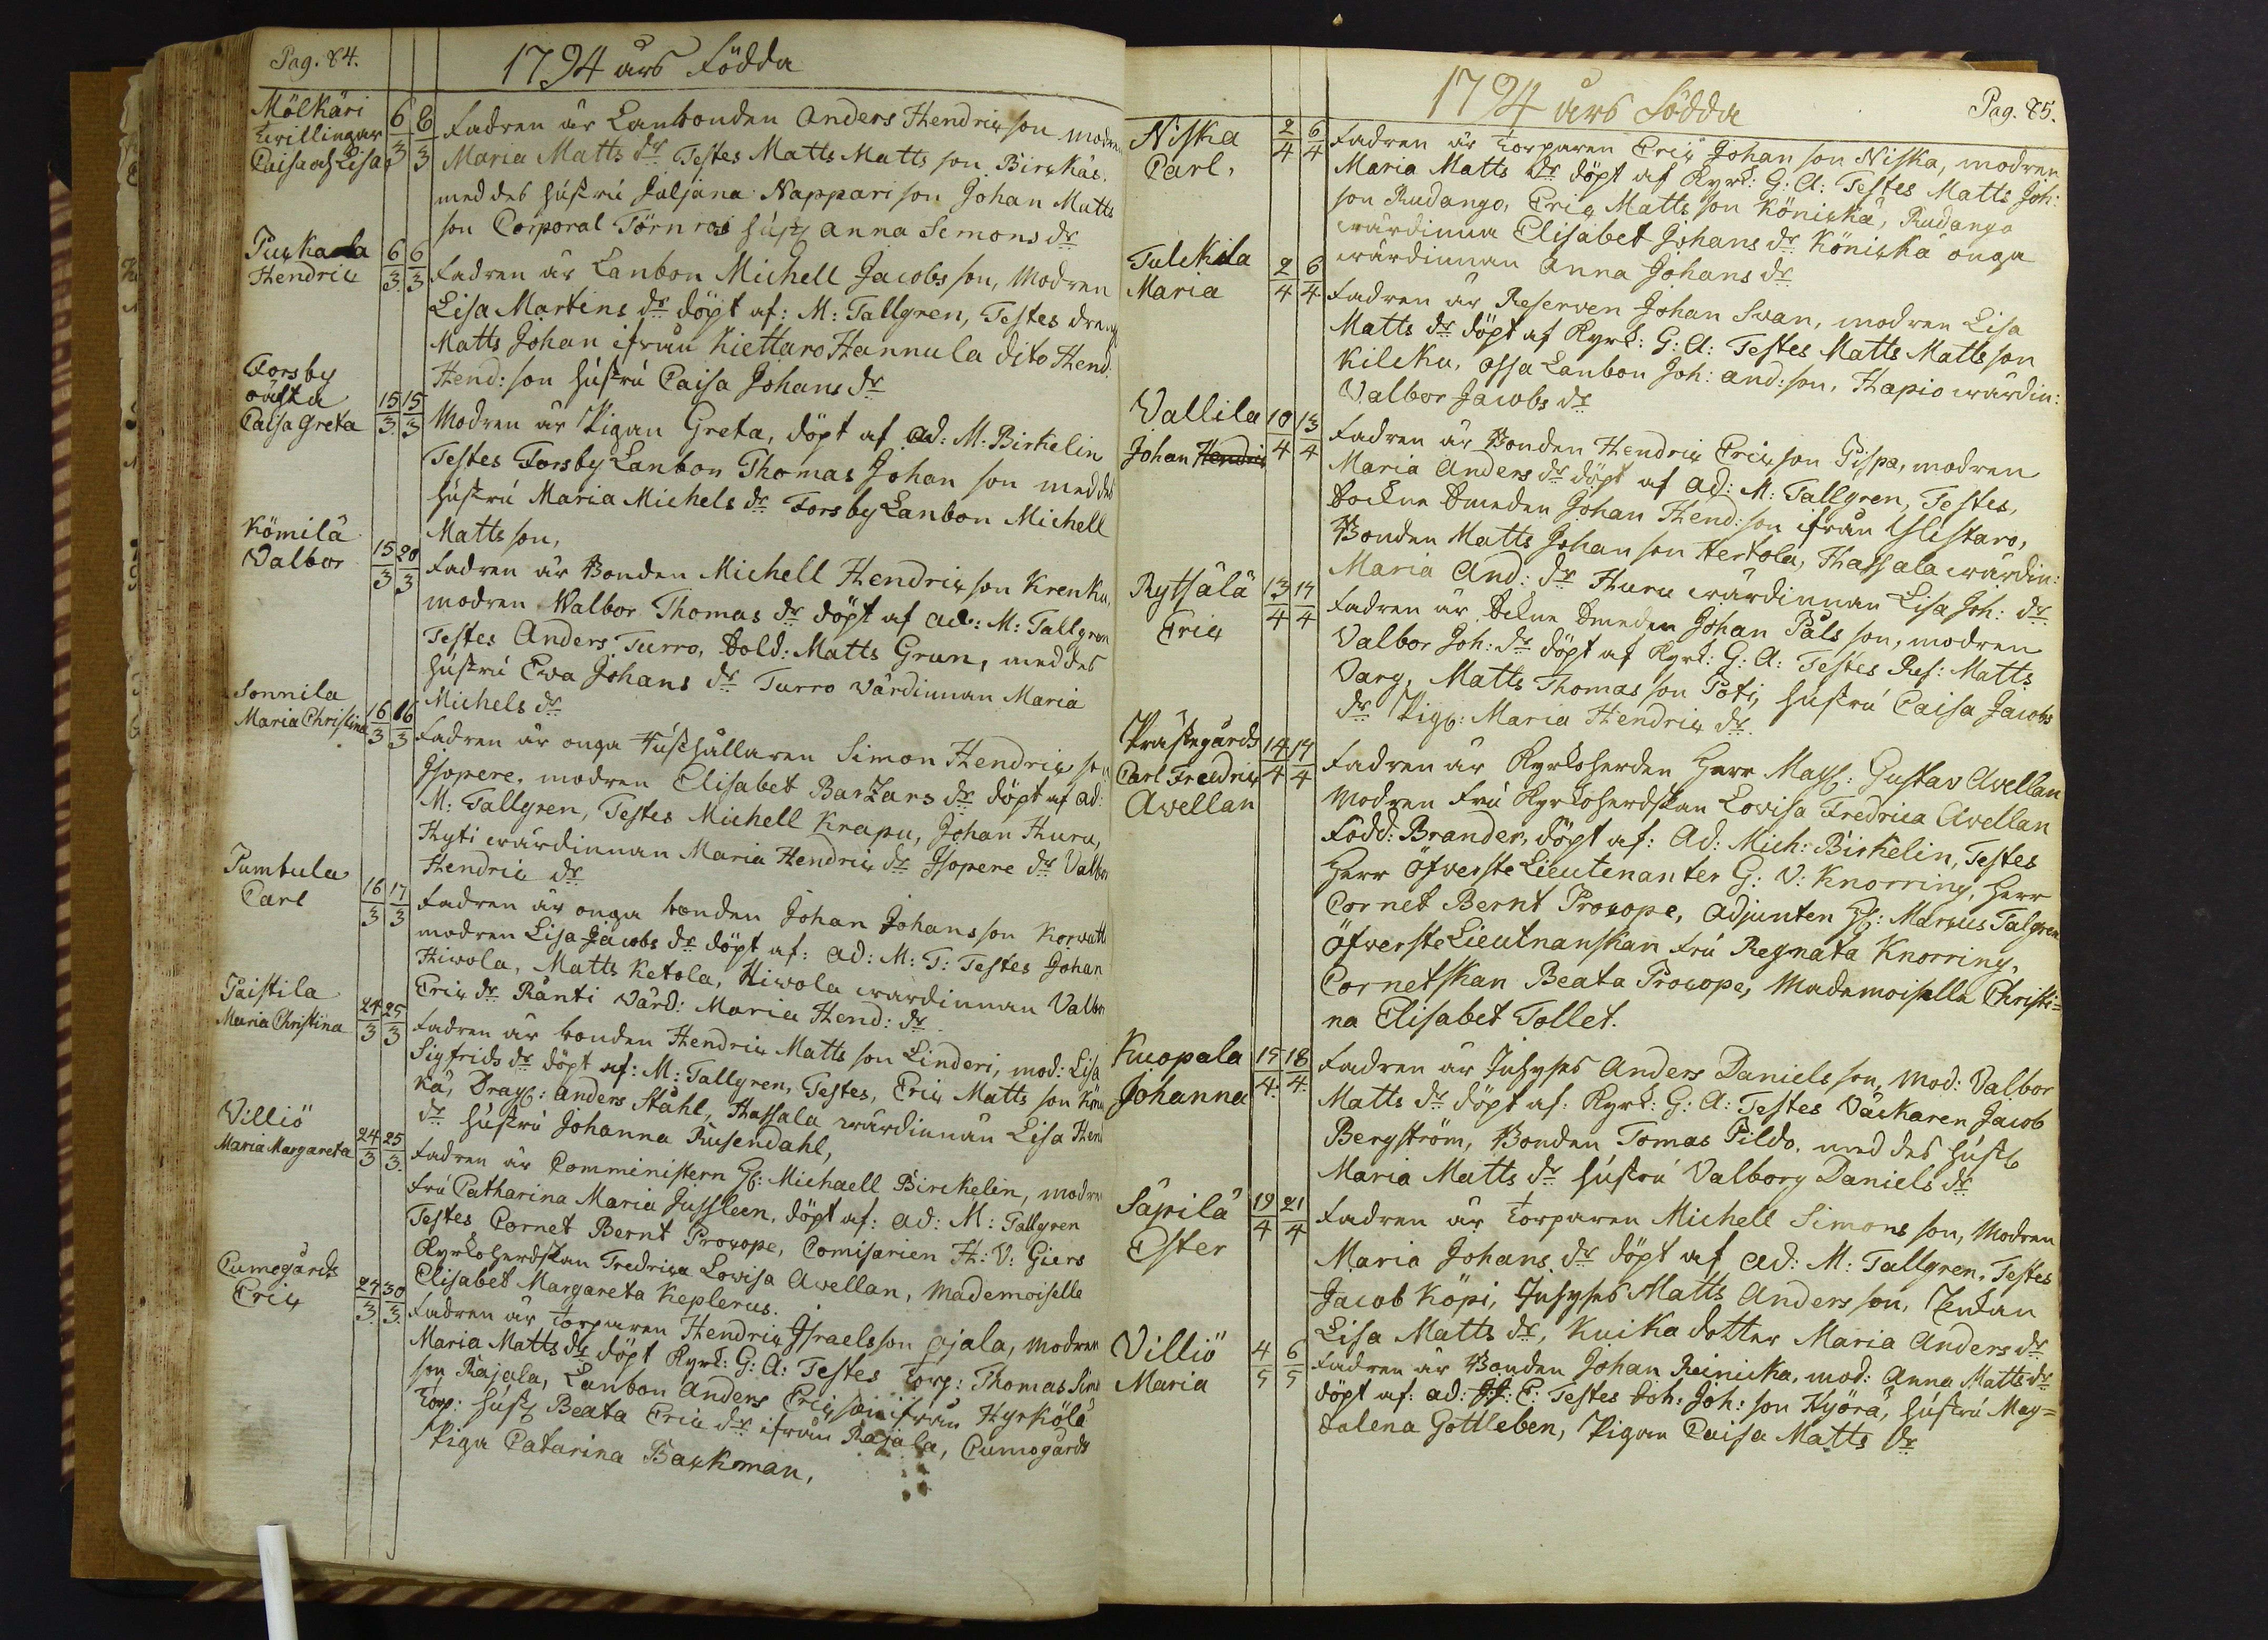 Pag. 84.
1794 års Födda
Mölkäri
Twillingar
Caisa och Lisa
6/3 6/3
Fadren är Lanbonden Anders Hendrix son modren
Maria Matts dr Testes Matts Matts son Birckäs.
med des hustru Juljana Nappari son Johan Matts
son Corporal Törnros hust Anna Semons dr
Puckala
Hendric
6/3 6/3
Fadren är Lanbon Michell Jacobs son, Modren
Lisa Martins dr döpt af: M: Tallgren, Testes dreng
Matts Johan ifrån Kiettaro Hannula dito Hend:
Hend: son hustru Caisa Johans dr
Forsby
Caisa Greta
15/3 15/3
Modren är Pigan Greta, döpt af Ad: M: Birkelin
Testes Forsby Lanbon Thomas Johan son med des
hustru Maria Michels dr Forsby Lanbon Michell
Matts son,
Kömilä
Valbor
15/3 20/3
Fadren är Bonden Michell Hendrix son Krenku,
modren Walbor Thomas dr döpt af Ad: M: Tallgren
Testes Anders Turro, Sold: Matts Grun, med des
hustru Ewa Johans dr Turro värdinnan Maria
Michels dr
Sonnila
Maria Christina
16/3 16/3
Fadren är onga Hushållaren Simon Hendrix son
Isopere, modren Elisabet Barzars dr döpt af Ad:
M: Tallgren, Testes Michell Krapu, Johan Huru,
Hyti wärdinnan Maria Hendrix dr Isopere dr Valbor
Hendric dr
Pumbula
Carl
16/3 17/3
Fadren är onga bonden Johan Johans son Korvatt
modren Lisa Jacobs dr döpt af: Ad: M: T: Testes Johan
Hiwola, Matts Ketola, Hiwola wärdinnan Valbor
Erix dr Ränti Värd: Maria Hend: dr
Paistila
Maria Christina
24/3 25/3
Fadren är bonden Hendrix Matts son Linderi, mod: Lisa
Sigfrids dr döpt af: M: Tallgren, Testes, Erix Matts son Köni
kä, Drag: Anders Ståhl, Hassala wärdinnan Lisa Hend
dr hustru Johanna Rusendahl,
Villiö
Maria Margareta
24/3 25/3
Fadren är Comministern H: Michaell Birckelin, modren
fru Catharina Maria Jusleen, döpt af: Ad: M: Tallgren
Testes Cornet Bernt Procope, Comisarien H: V: Giers
Kyrkoherdskan Fredrica Lovisa Avellan, Mademoiselle
Elisabet Margareta Keplerus.
Cumogårds
Erix
27/3 30/3
Fadren är Torparen Hendrix Israels son Ojala, modren
Maria Matts dr döpt Kyrk: G: A: Testes Torp: Thomas Sim
son Rajala, Lanbon Anders Erix son ifrån Hyrkölä
Torp: hust Beata Erix dr ifrån Rajala, Cumogårds
Piga Catarina Backman,
1794 års Födda
Pag. 85.
Niska
Carl,
2/4 6/4
Fadren är Torparen Erix Johan son Niska, modren
Maria Matts dr döpt af Kyrk: G: A: Testes Matts Joh:
son Rudango, Erix Matts son Könickä, Rudango
wärdinna Elisabet Johans dr Könickä onga
wärdinnan Anna Johans dr
Tulckila
Maria
2/4 6/4
Fadren är Reserven Johan Svan, modren Lisa
Matts dr döpt af Kyrk: G: A: Testes Matts Matts son
Kilcku, Ossa Lanbon Joh: And: son, Hapio wärdin:
Valbor Jacobs dr
Vallila
Johan Hendric
10/4 13/4
Fadren är Bonden Hendrix Erix son Pispa, modren
Maria Anders dr döpt af Ad: M: Tallgren, Testes,
Sockne Smeden Johan Hend: son ifrån Yllistaro,
Bonden Matts Johan son Hertola, Hassala wärdin:
Maria And: dr Huru wärdinnan Lisa Joh: dr
Rytsälä
Erix
13/4 14/4
Fadren är Sckne Smeden Johan Påls son, modren
Valbor Joh: dr döpt af Kyrk: G: A: Testes Res: Matts
Varg, Matts Thomas son Poti, hustru Caisa Jacobs
dr Pig: Maria Hendrix dr
Prästegårds
Carl Freedrix
Avellan
14/4 17/4
Fadren är Kyrkoherden Herr Mag: Gustav Avellan
Modren fru Kyrkoherdskan Lovisa Fredrica Avellan
Född: Brander, döpt af: Ad: Mich: Birkelin, Testes
Herr Öfverste Lieutenanten G: V: Knorring, Herr
Cornet Bernt Procope, Adjunten H: Marcus Talgren
Öfverste Lieutnanskan fru Regnata Knorring,
Cornetskan Beata Procope, Mademoiselle Christi=
na Elisabet Tollet.
Kuopala
Johanna
15/4 18/4
Fadren är Inhyses Anders Daniels son, Mod: Valbor
Matts dr döpt af: Kyrk: G: A: Testes Väckaren Jacob
Bergström, Bonden Tomas Pildo, med des hust
Maria Matts dr hustru Valborg Daniels dr
Säpilä
Ester
19/4 21/4
Fadren är Torparen Michell Simons son, Modren
Maria Johans dr döpt af Ad: M: Tallgren, Testes
Jacob Köpi, Inhyses Matts Anders son, Enkan
Lisa Matts dr, Kuika dotter Maria Anders dr
Villiö
Maria
4/5 6/5
Fadren är Bonden Johan Reinicka, mod: Anna Matts dr
döpt af: Ad: J: E: Testes Soh: Joh: son Kyörä, hustru Mag=
dalena Gottleben, Pigan Caisa Matts dr